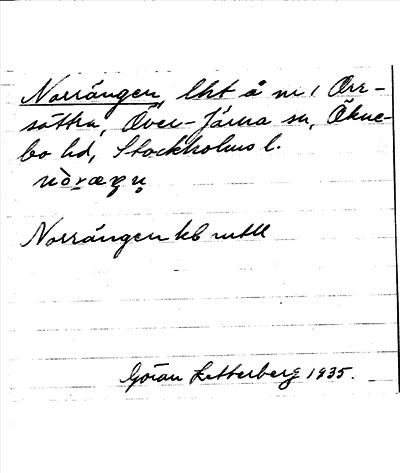 Norrängen, lht å nr 1 Orr-
sättra, Över-Järna sn, Ökne-
bo hd, Stockholms l.
Norrängen kb mtll
Göran Zetterberg 1935.